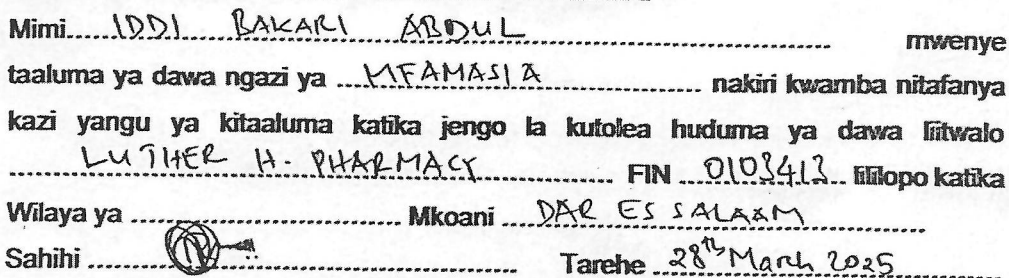 Mimi.....IDDI BAKARI ABDUL............................................ mwenye
taaluma ya dawa ngazi ya ....MFAMASIA.......................... nakiri kwamba nitafanya
kazi yangu ya kitaaluma katika jengo la kutolea huduma ya dawa liitwalo
............LUTHER H. PHARMACY........................ FIN ....0103413... lililopo katika
Wilaya ya .................................... Mkoani ....DAR ES SALAAM................
Sahihi ........................................................ Tarehe ...28th March 2025................